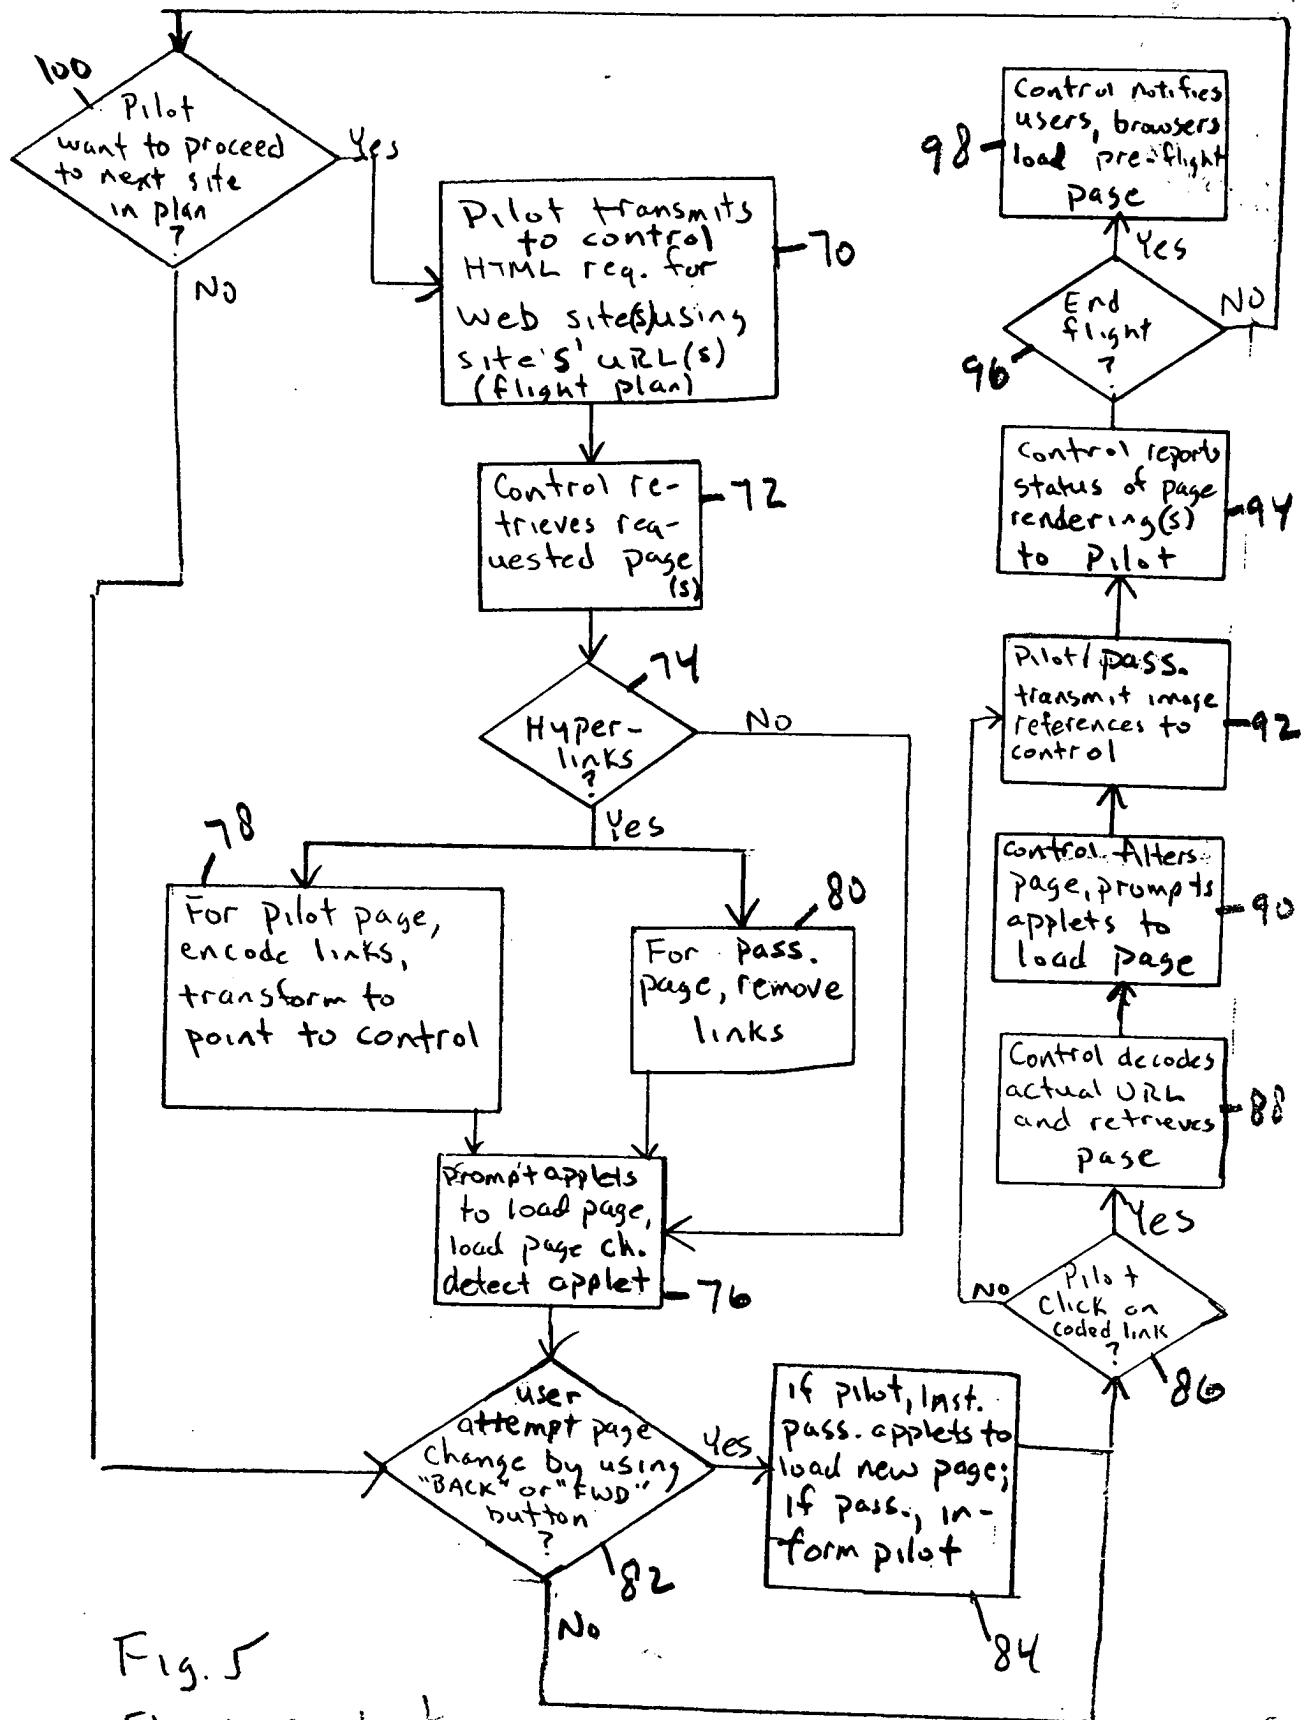 100
Pilot
want to proceed
to next site
in plan
?
Yes
NO
Pilot transmits
to control
HTML req. for
Web site(s)using
site's' URL(s)
(flight plan)
70
Control re-
trieves req-
uested page
(s)
72
74
Hyper-
links
?
NO
Yes
78
For pilot page,
encode links,
transform to
point to control
80
For pass.
page, remove
links
Prompt applets
to load page,
load page ch.
detect applet
76
user
attempt page
change by using
"BACK" or "FWD"
button
?
82
Yes
NO
if pilot, Inst.
pass. applets to
load new page;
if pass., in-
form pilot
84
Pilot
Click on
coded link
?
86
NO
Yes
Control decodes
actual URL
and retrieves
page
88
control filters
page, prompts
applets to
load page
90
Pilot/pass.
transmit image
references to
control
92
Control reports
status of page
rendering(s)
to Pilot
94
End
flight
?
96
NO
Yes
Control notifies
users, browsers
load pre-flight
page
98
Fig. 5